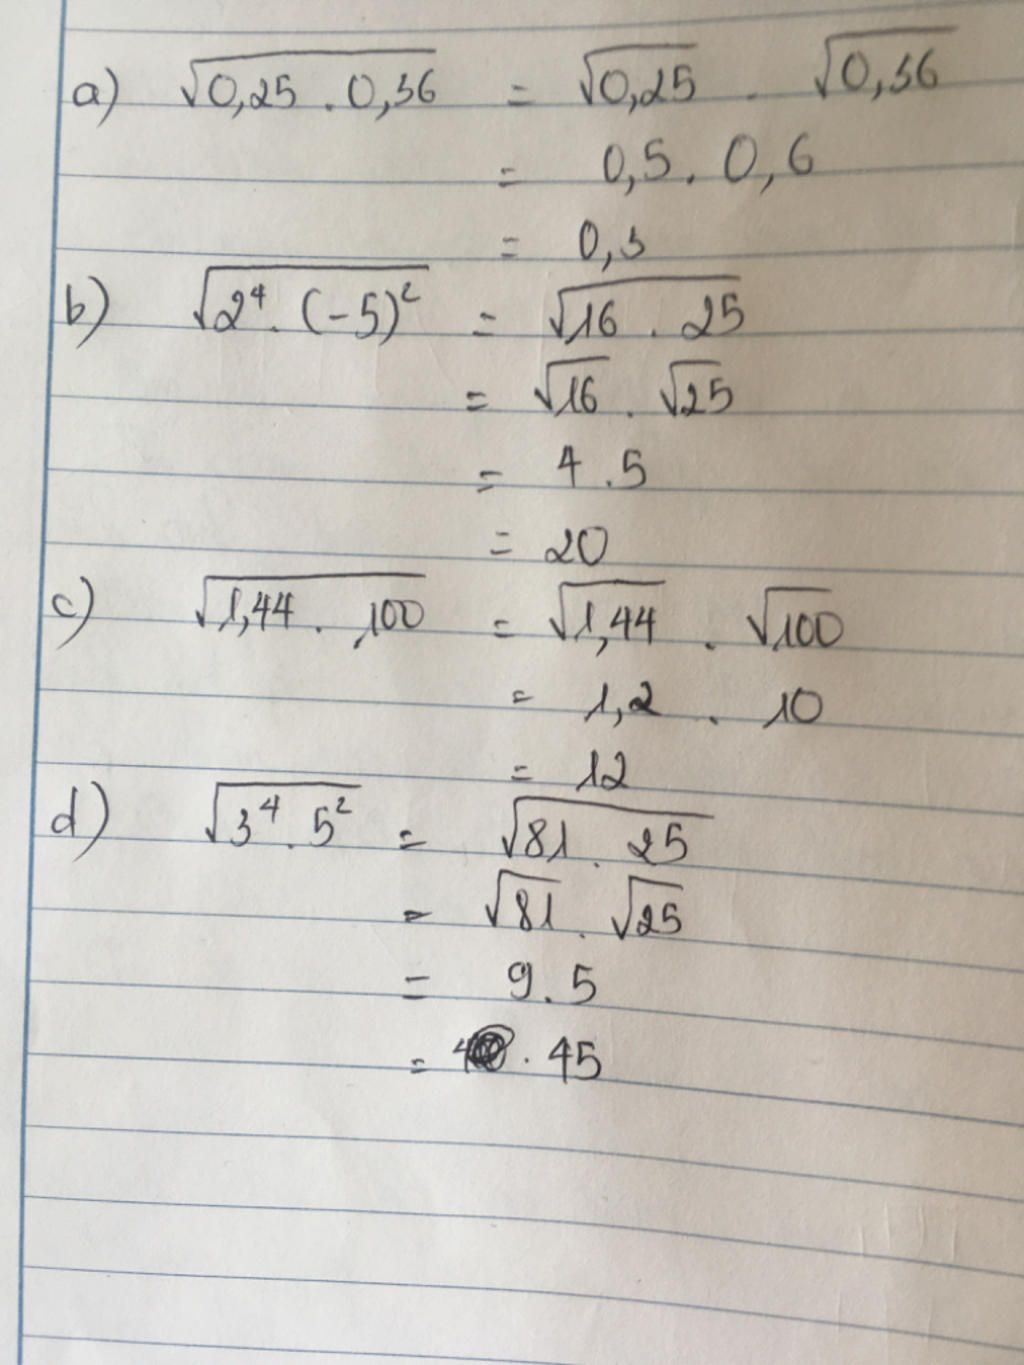 a) √0,25 . 0,36 = √0,25 . √0,36
= 0,5 . 0,6
= 0,3
b) √2⁴ . (-5)² = √16 . 25
= √16 . √25
= 4 . 5
= 20
c) √1,44 . 100 = √1,44 . √100
= 1,2 . 10
= 12
d) √3⁴ . 5² = √81 . 25
= √81 . √25
= 9 . 5
= . 45